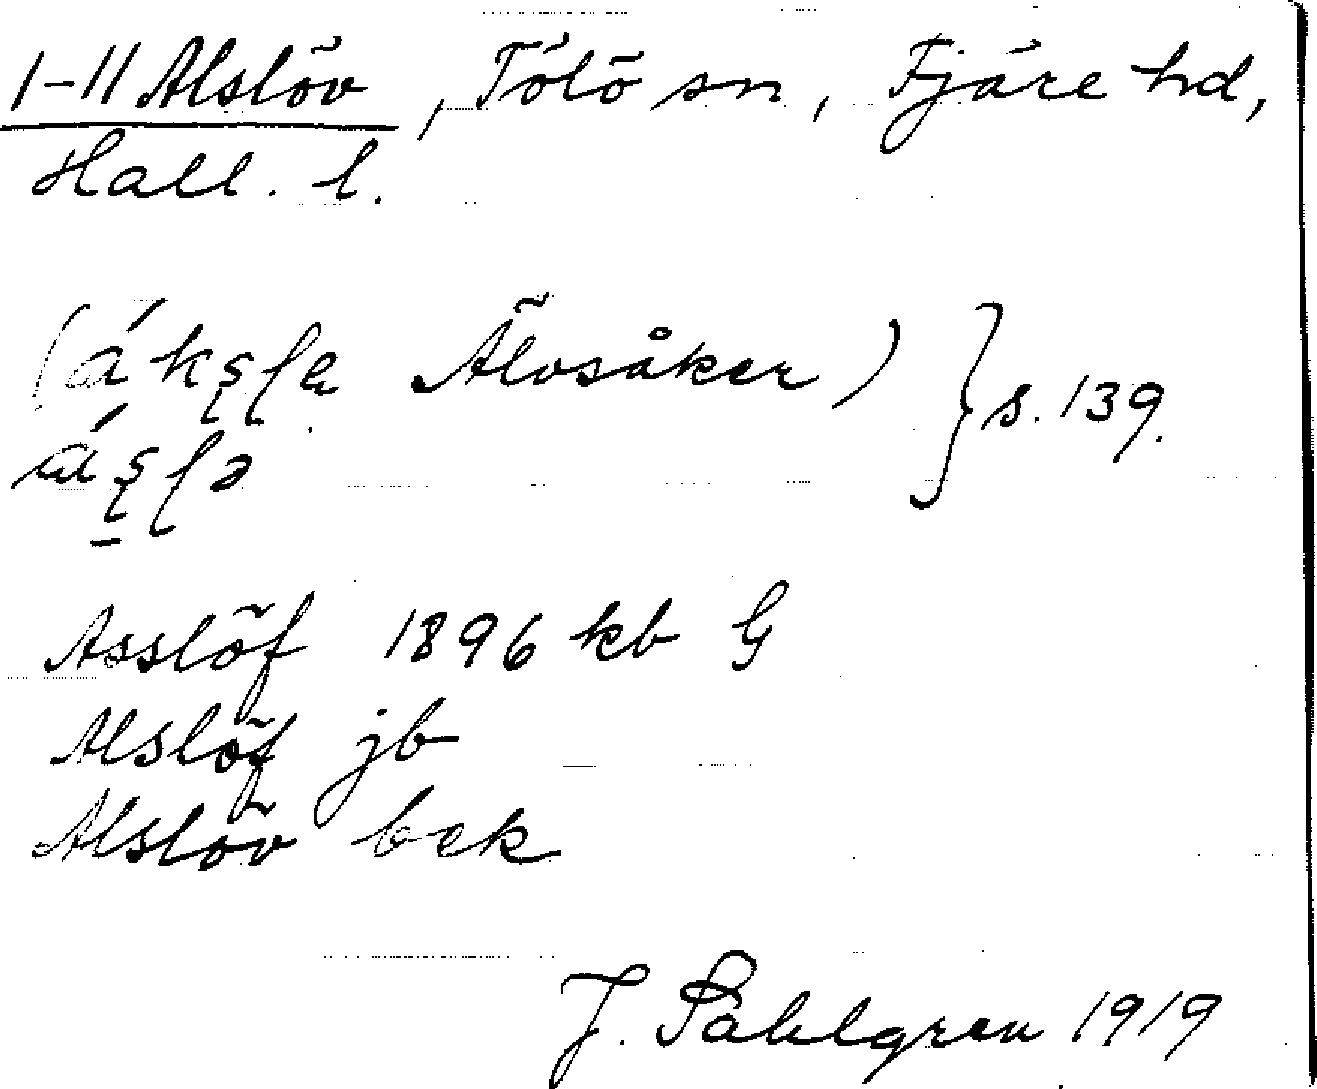 I-II Alslöv, Tölö sn, Fjäre hd,
Hall. l.
(áksle Älvsåker) } s. 139.
áslə
Asslöf 1896 kb G
Alslöf jb
Alslöv bek
J. Sahlgren 1919